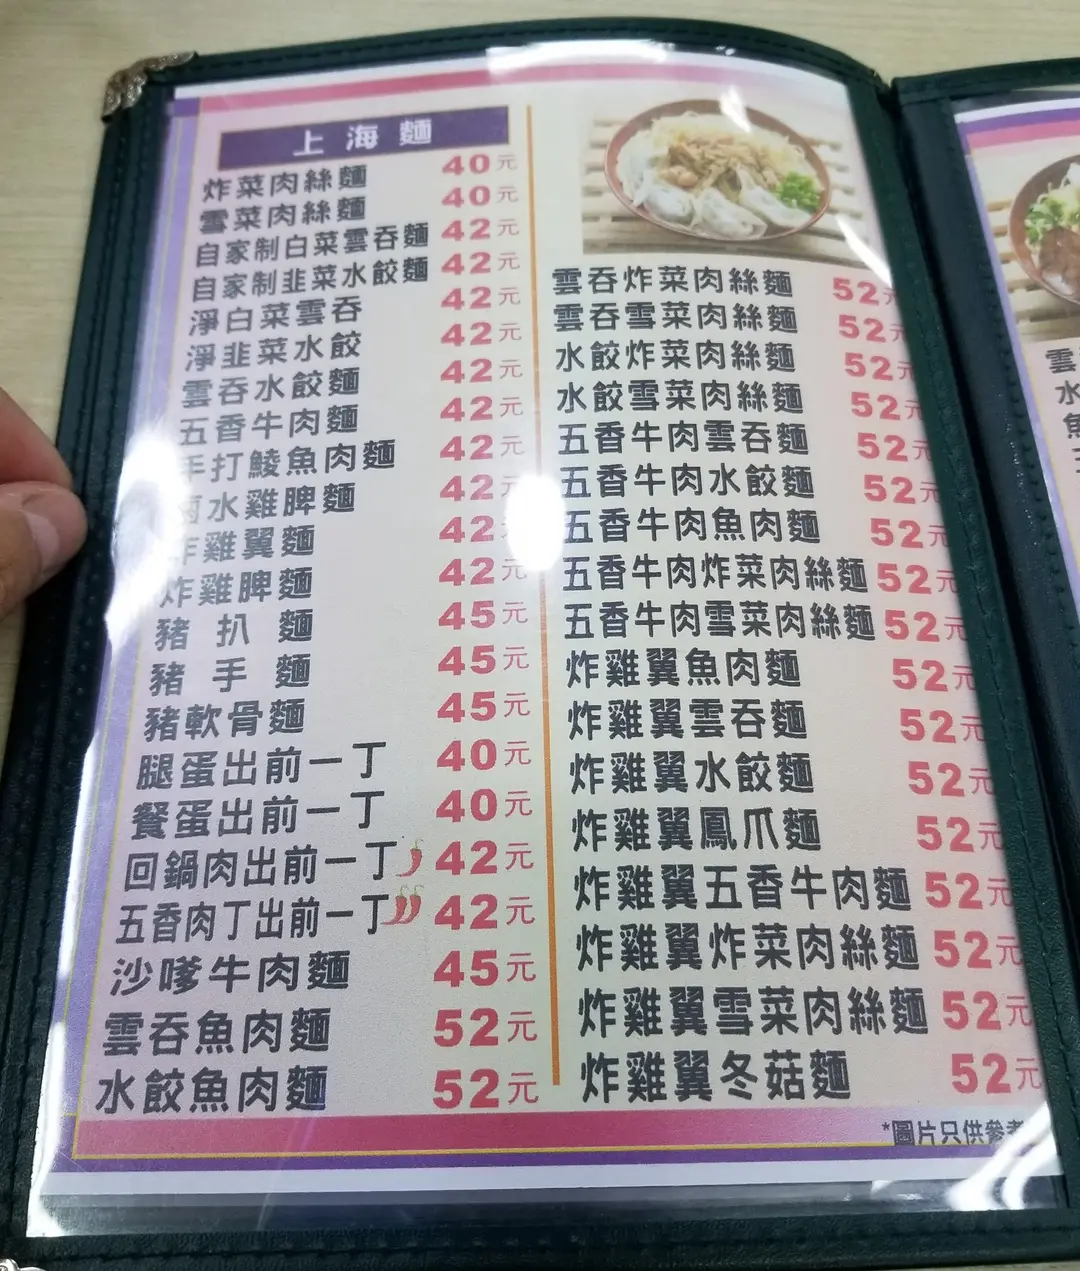 上海麵
炸菜肉絲麵 40元
雪菜肉絲麵 40元
自家制白菜雲吞麵 42元
自家制韭菜水餃麵 42元
淨白菜雲吞 42元
淨韭菜水餃 42元
雲吞水餃麵 42元
五香牛肉麵 42元
手打鯪魚肉麵 42元
水雞脾麵 42元
炸雞翼麵 42元
炸雞脾麵 42元
豬扒麵 45元
豬手麵 45元
豬軟骨麵 45元
腿蛋出前一丁 40元
餐蛋出前一丁 40元
回鍋肉出前一丁 42元
五香肉丁出前一丁 42元
沙嗲牛肉麵 45元
雲吞魚肉麵 52元
水餃魚肉麵 52元
雲吞炸菜肉絲麵 52元
雲吞雪菜肉絲麵 52元
水餃炸菜肉絲麵 52元
水餃雪菜肉絲麵 52元
五香牛肉雲吞麵 52元
五香牛肉水餃麵 52元
五香牛肉魚肉麵 52元
五香牛肉炸菜肉絲麵 52元
五香牛肉雪菜肉絲麵 52元
炸雞翼魚肉麵 52元
炸雞翼雲吞麵 52元
炸雞翼水餃麵 52元
炸雞翼鳳爪麵 52元
炸雞翼五香牛肉麵 52元
炸雞翼炸菜肉絲麵 52元
炸雞翼雪菜肉絲麵 52元
炸雞翼冬菇麵 52元
*圖片只供參考
雲
水
魚